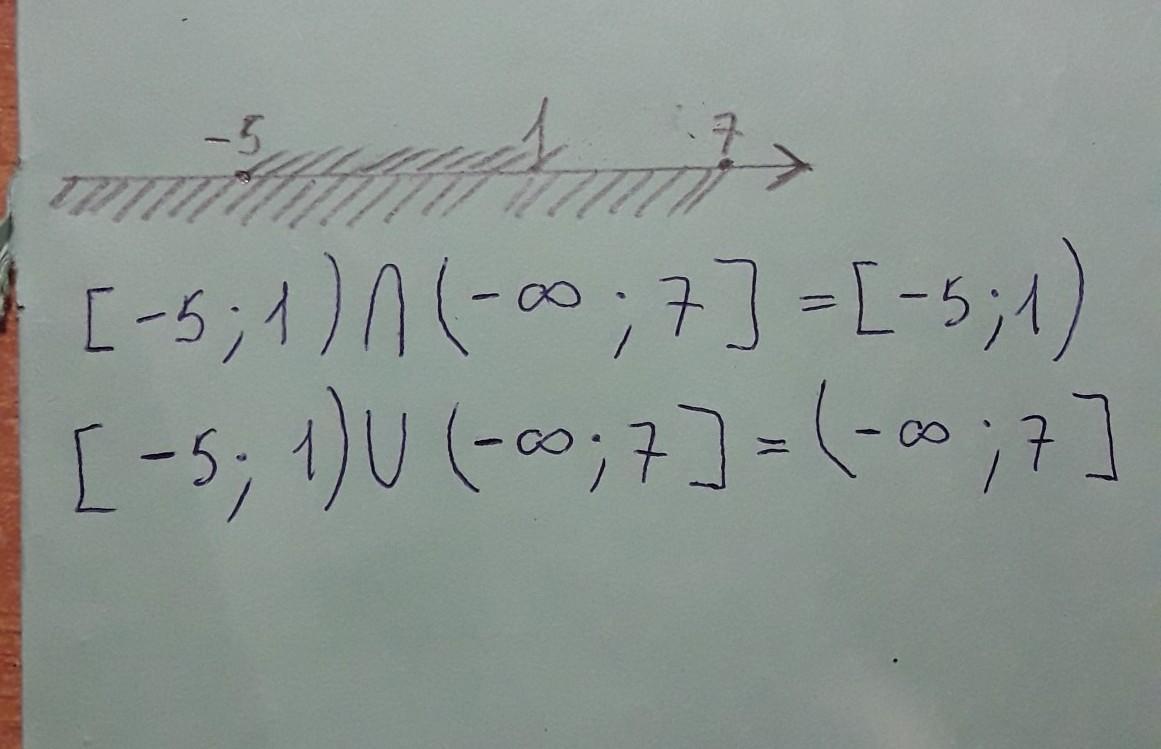 -5 1 7
[-5; 1) ∩ (-∞; 7] = [-5; 1)
[-5; 1) ∪ (-∞; 7] = (-∞; 7]